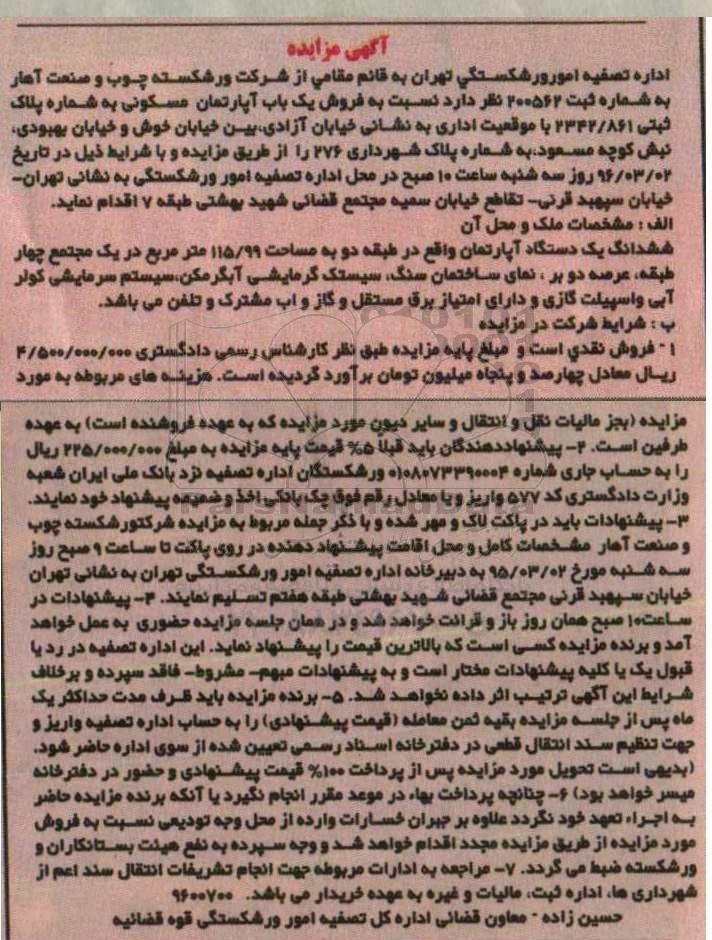 آگهی مزایده
اداره تصفیه امورورشکستگي تهران به قائم مقامي از شرکت ورشکسته چوب و صنعت آهار
به شماره ثبت ۲۰۰۵۶۲ نظر دارد نسبت به فروش یک باب آپارتمان مسکونی به شماره پلاک
ثبتی ۲۳۴۲/۸۶۱ با موقعیت اداری به نشانی خیابان آزادی،بین خیابان خوش و خیابان بهبودی،
نبش کوچه مسعود،به شماره پلاک شهرداری ۲۷۶ را از طریق مزایده و با شرایط ذیل در تاریخ
۹۶/۰۳/۰۲ روز سه شنبه ساعت ۱۰ صبح در محل اداره تصفیه امور ورشکستگی به نشانی تهران-
خیابان سپهبد قرنی- تقاطع خیابان سمیه مجتمع قضائی شهید بهشتی طبقه ۷ اقدام نماید.
الف : مشخصات ملک و محل آن
ششدانگ یک دستگاه آپارتمان واقع در طبقه دو به مساحت ۱۱۵/۹۹ متر مربع در یک مجتمع چهار
طبقه، عرصه دو بر ، نمای ساختمان سنگ، سیستک گرمایشی آبگرمکن،سیستم سرمایشی کولر
آبی واسپیلت گازی و دارای امتیاز برق مستقل و گاز و اب مشترک و تلفن می باشد.
ب : شرایط شرکت در مزایده
۱- فروش نقدي است و مبلغ پایه مزایده طبق نظر کارشناس رسمی دادگستری ۴/۵۰۰/۰۰۰/۰۰۰
ریال معادل چهارصد و پنجاه میلیون تومان برآورد گردیده است. هزینه های مربوطه به مورد
مزایده (بجز مالیات نقل و انتقال و سایر دیون مورد مزایده که به عهده فروشنده است) به عهده
طرفین است. ۲- پیشنهاددهندگان باید قبلا ۵% قیمت پایه مزایده به مبلغ ۲۲۵/۰۰۰/۰۰۰ ریال
را به حساب جاری شماره ۰۱۰۸۰۷۳۳۹۰۰۰۴ ورشکستگان اداره تصفیه نزد بانک ملی ایران شعبه
وزارت دادگستری کد ۵۷۷ واریز و یا معادل رقم فوق چک بانکی اخذ و ضمیمه پیشنهاد خود نمایند.
۳- پیشنهادات باید در پاکت لاک و مهر شده و با ذکر جمله مربوط به مزایده شرکتورشکسته چوب
و صنعت آهار مشخصات کامل و محل اقامت پیشنهاد دهنده در روی پاکت تا ساعت ۹ صبح روز
سه شنبه مورخ ۹۵/۰۳/۰۲ به دبیرخانه اداره تصفیه امور ورشکستگی تهران به نشانی تهران
خیابان سپهبد قرنی مجتمع قضائی شهید بهشتی طبقه هفتم تسلیم نمایند. ۴- پیشنهادات در
ساعت۱۰ صبح همان روز باز و قرائت خواهد شد و در همان جلسه مزایده حضوری به عمل خواهد
آمد و برنده مزایده کسی است که بالاترین قیمت را پیشنهاد نماید. این اداره تصفیه در رد یا
قبول یک یا کلیه پیشنهادات مختار است و به پیشنهادات مبهم- مشروط- فاقد سپرده و برخلاف
شرایط این آگهی ترتیب اثر داده نخواهد شد. ۵- برنده مزایده باید ظرف مدت حداکثر یک
ماه پس از جلسه مزایده بقیه ثمن معامله (قیمت پیشنهادی) را به حساب اداره تصفیه واریز و
جهت تنظیم سند انتقال قطعی در دفترخانه اسناد رسمی تعیین شده از سوی اداره حاضر شود.
(بدیهی است تحویل مورد مزایده پس از پرداخت ۱۰۰% قیمت پیشنهادی و حضور در دفترخانه
میسر خواهد بود) ۶- چنانچه پرداخت بهاء در موعد مقرر انجام نگیرد یا آنکه برنده مزایده حاضر
به اجراء تعهد خود نگردد علاوه بر جبران خسارات وارده از محل وجه تودیعی نسبت به فروش
مورد مزایده از طریق مزایده مجدد اقدام خواهد شد و وجه سپرده به نفع هیئت بستانکاران و
ورشکسته ضبط می گردد. ۷- مراجعه به ادارات مربوطه جهت انجام تشریفات انتقال سند اعم از
شهرداری ها، اداره ثبت، مالیات و غیره به عهده خریدار می باشد. ۹۶۰۰۷۰۰
حسین زاده - معاون قضائی اداره کل تصفیه امور ورشکستگی قوه قضائیه